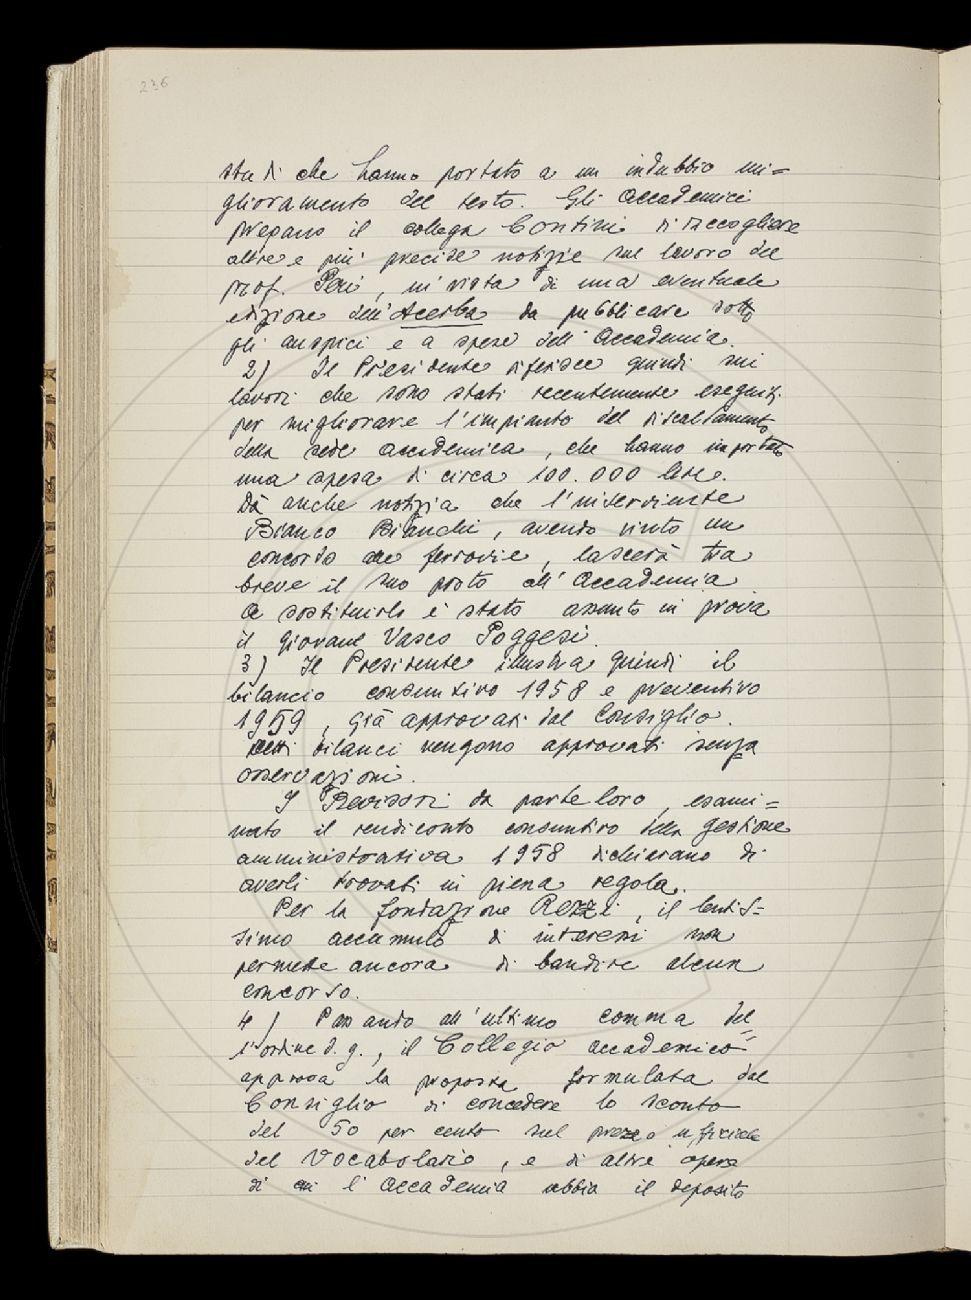 236
studi che hanno portato a un indubbio mi=
glioramento del testo. Gli Accademici
pregano il collega Contini di raccogliere
altre e più precise notizie sul lavoro del
prof. , in vista di una eventuale
edizione dell'Acerba da pubblicare sotto
gli auspici e a spese dell'Accademia.
2) Il Presidente riferisce quindi sui
lavori che sono stati recentemente eseguiti
per migliorare l'impianto del riscaldamento
della sede accademica, che hanno importato
una spesa di circa 100.000 lire.
Dà anche notizia che l'inserviente
Bianco Bianchi, avendo vinto un
concorso alle ferrovie, lascerà tra
breve il suo posto all'Accademia
A sostituirlo è stato assunto in prova
il giovane Vasco Poggesi.
3) Il Presidente illustra quindi il
bilancio consuntivo 1958 e preventivo
1959, già approvati dal Consiglio.
Detti bilanci vengono approvati senza
osservazioni.
I Revisori da parte loro, esami=
nato il rendiconto consuntivo della gestione
amministrativa 1958 dichiarano di
averli trovati in piena regola.
Per la fondazione Rezzi, il lentis=
simo accumulo di interessi non
permette ancora di bandire alcun
concorso.
4) Passando all'ultimo comma del=
l'ordine d. g., il Collegio accademico
approva la proposta formulata dal
Consiglio di concedere lo sconto
del 50 per cento sul prezzo ufficiale
del Vocabolario, e di altre opere
di cui l'Accademia abbia il deposito